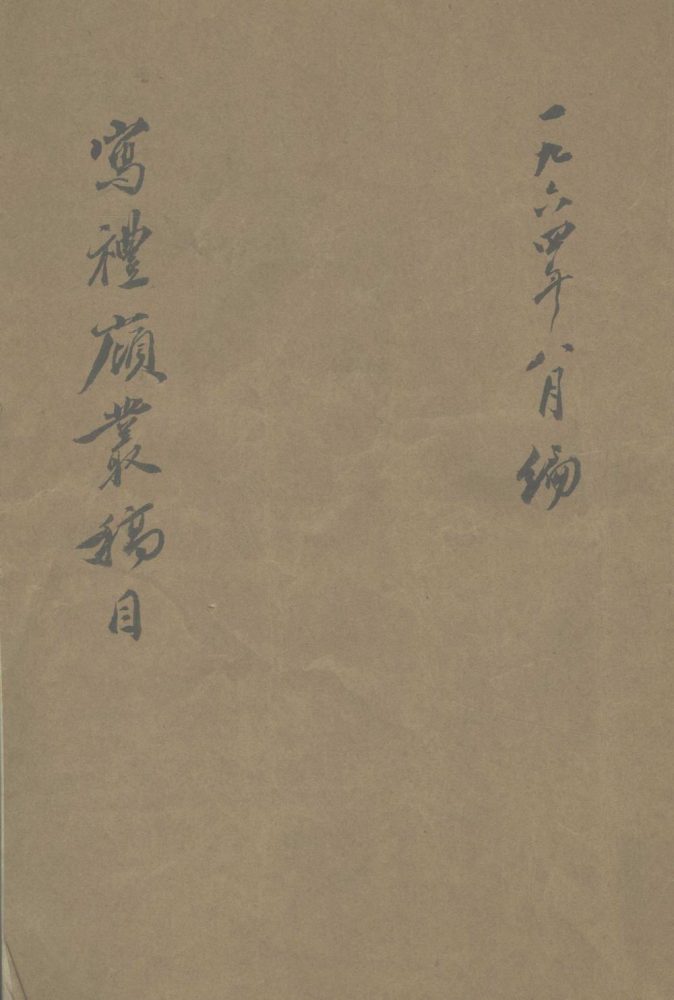 一九六四年八月编
寫禮廎叢稿目